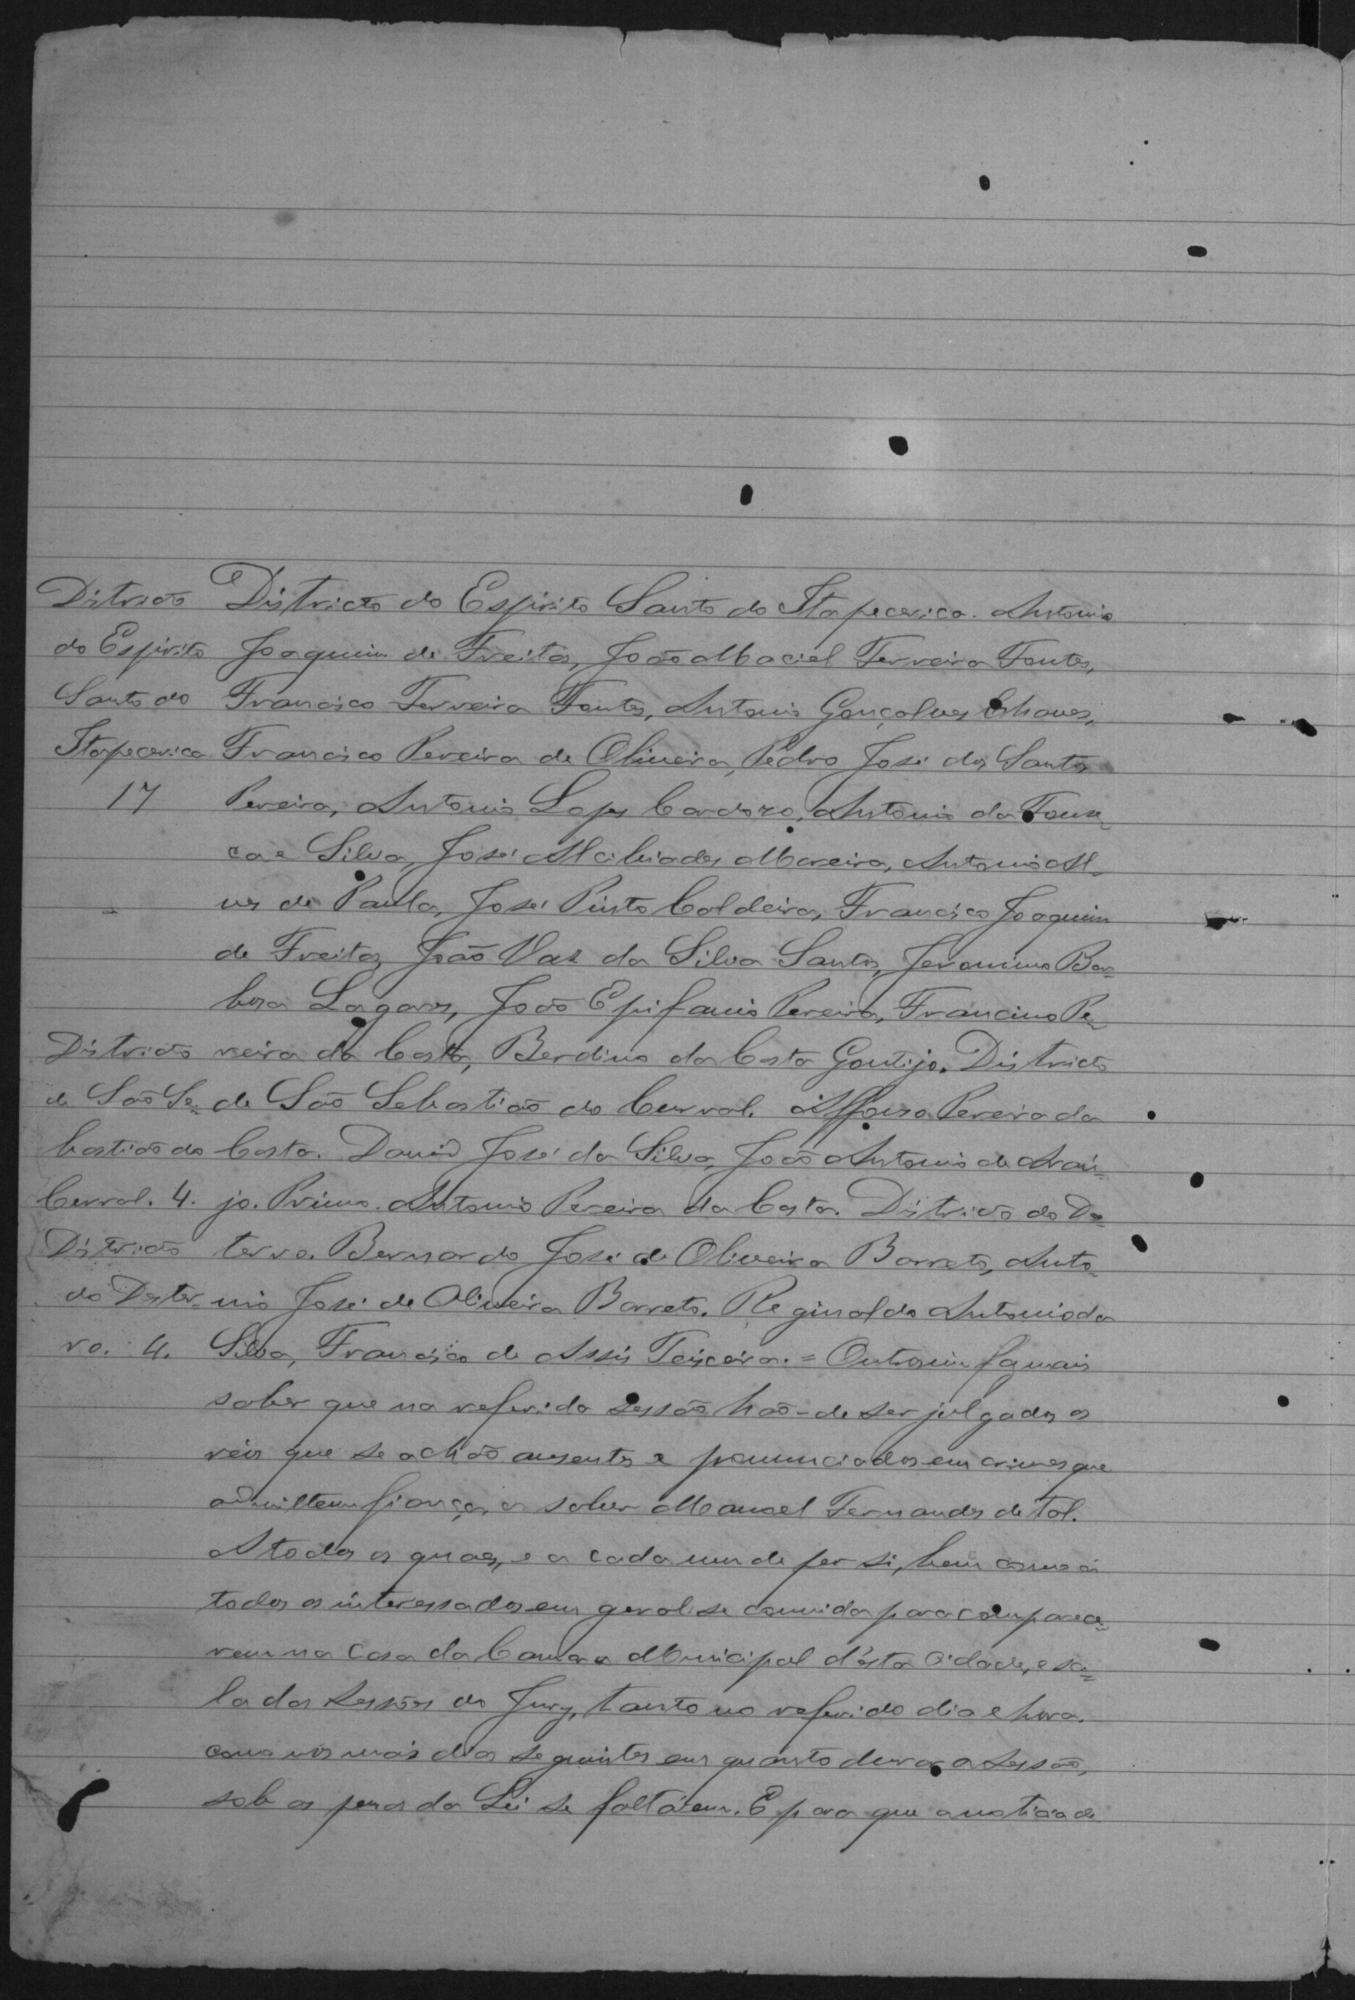 Ditricto Districto do Espirito Santo do Itapecerica. Antonio
do Espirito Joaquim de Freitas, João Maciel Ferreira Fontes,
Santo do Francisco Ferreira Fontes, Antonio Gonçalves Chaves,
Itapecerica Francisco Pereira de Oliveira, Pedro José dos Santos
17 Pereira, Antonio Lopes Cardozo, Antonio da Fonse¬
ca e Silva, José Alcibiades Moreira, Antonio Al¬
ves de Paula, José Pinto Caldeira, Francisco Joaquim
de Freitas, João Vaz da Silva Santos, Jeronimo Bar¬
bosa Lagares, João Epifanio Pereira, Francino Pe¬
Districto reira da Costa, Berdino da Costa Gontijo. Districto
de São Se¬ de São Sebastião do Curral. Affonso Pereira da
bastião do Costa. David José da Silva, João Antonio de Arau¬
Curral. 4. jo. Primo. Antonio Pereira da Costa. Districto do Des¬
Districto terro. Bernardo José de Oliveira Barreto, Anto¬
do Dester¬ nio José de Oliveira Barreto. Reginaldo Antonio da
ro. 4. Silva, Francisco de Assis Teixeira. = Outrosim faço mais
saber que na referida sessão hão-de ser julgados os
réos que se achão ausentes e pronunciados em crimes que
admittem fiança, a saber Manoel Fernandes de tal.
A todos os quaes, e a cada um de per si, bem como á
todos os interessados em geral se convida para comparece¬
rem na Casa da Camara Municipal d'esta Cidade, e sa¬
la das Sessões do Jury, tanto no referido dia e hora,
como nos mais dias seguintes em quanto durar a sessão,
sob as penas da Lei se faltarem. E para que a noticia de